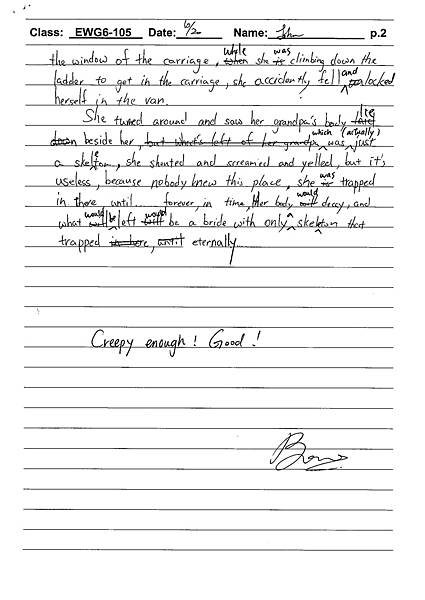 Class: EWG6-105 Date: 6/2 Name: John p.2
the window of the carriage, while when she was is climbing down the
ladder to get in the carriage, she accidently fell and locked
herself in the van.
She turned around and saw her grandpa's body lie
down beside her, but what's left of her grandpa which was (actually) just
a skeleton, she shouted and screamed and yelled, but it's
useless, because nobody knew this place, she was is trapped
in there until..... forever, in time, her body would will decay, and
what would will be left would be a bride with only skeleton that
trapped in here, until eternally
Creepy enough! Good!